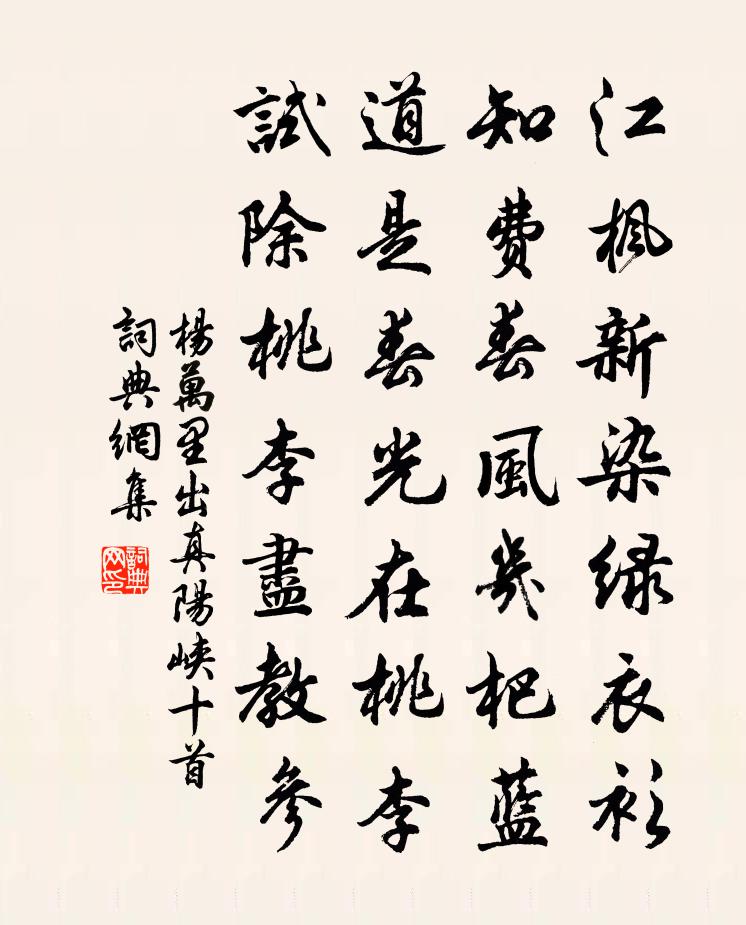 江楓新染綠衣衫
知費春風幾杷藍
道是春光在桃李
試除桃李盡教參
楊萬里出真陽峽十首
詞典網集
詞典網印